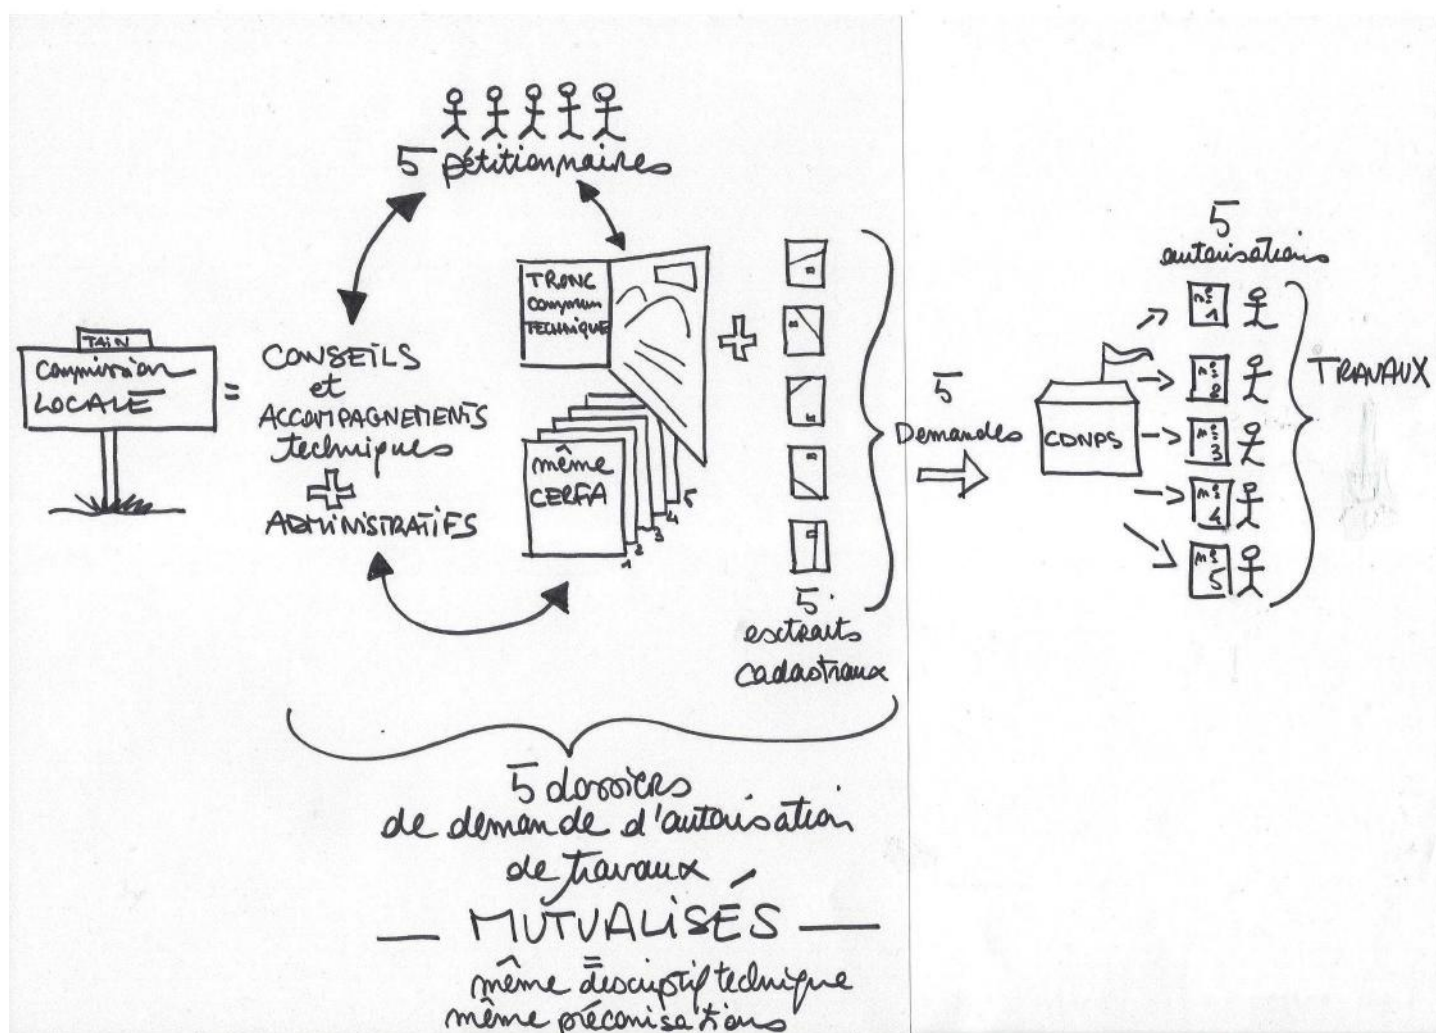 5 pétitionnaires
TAIN
Commission
LOCALE
=
CONSEILS
et
ACCOMPAGNEMENTS
techniques
+
ADMINISTRATIFS
TRONC
Commun
TECHNIQUE
même
CERFA
1
2
3
4
5
+
5
extraits
cadastraux
5
Demandes
CDNPS
5
autorisations
n°
1
n°
2
n°
3
n°
4
n°
5
TRAVAUX
5 dossiers
de demande d'autorisation
de travaux
— MUTUALISÉS —
=
même descriptif technique
même préconisations